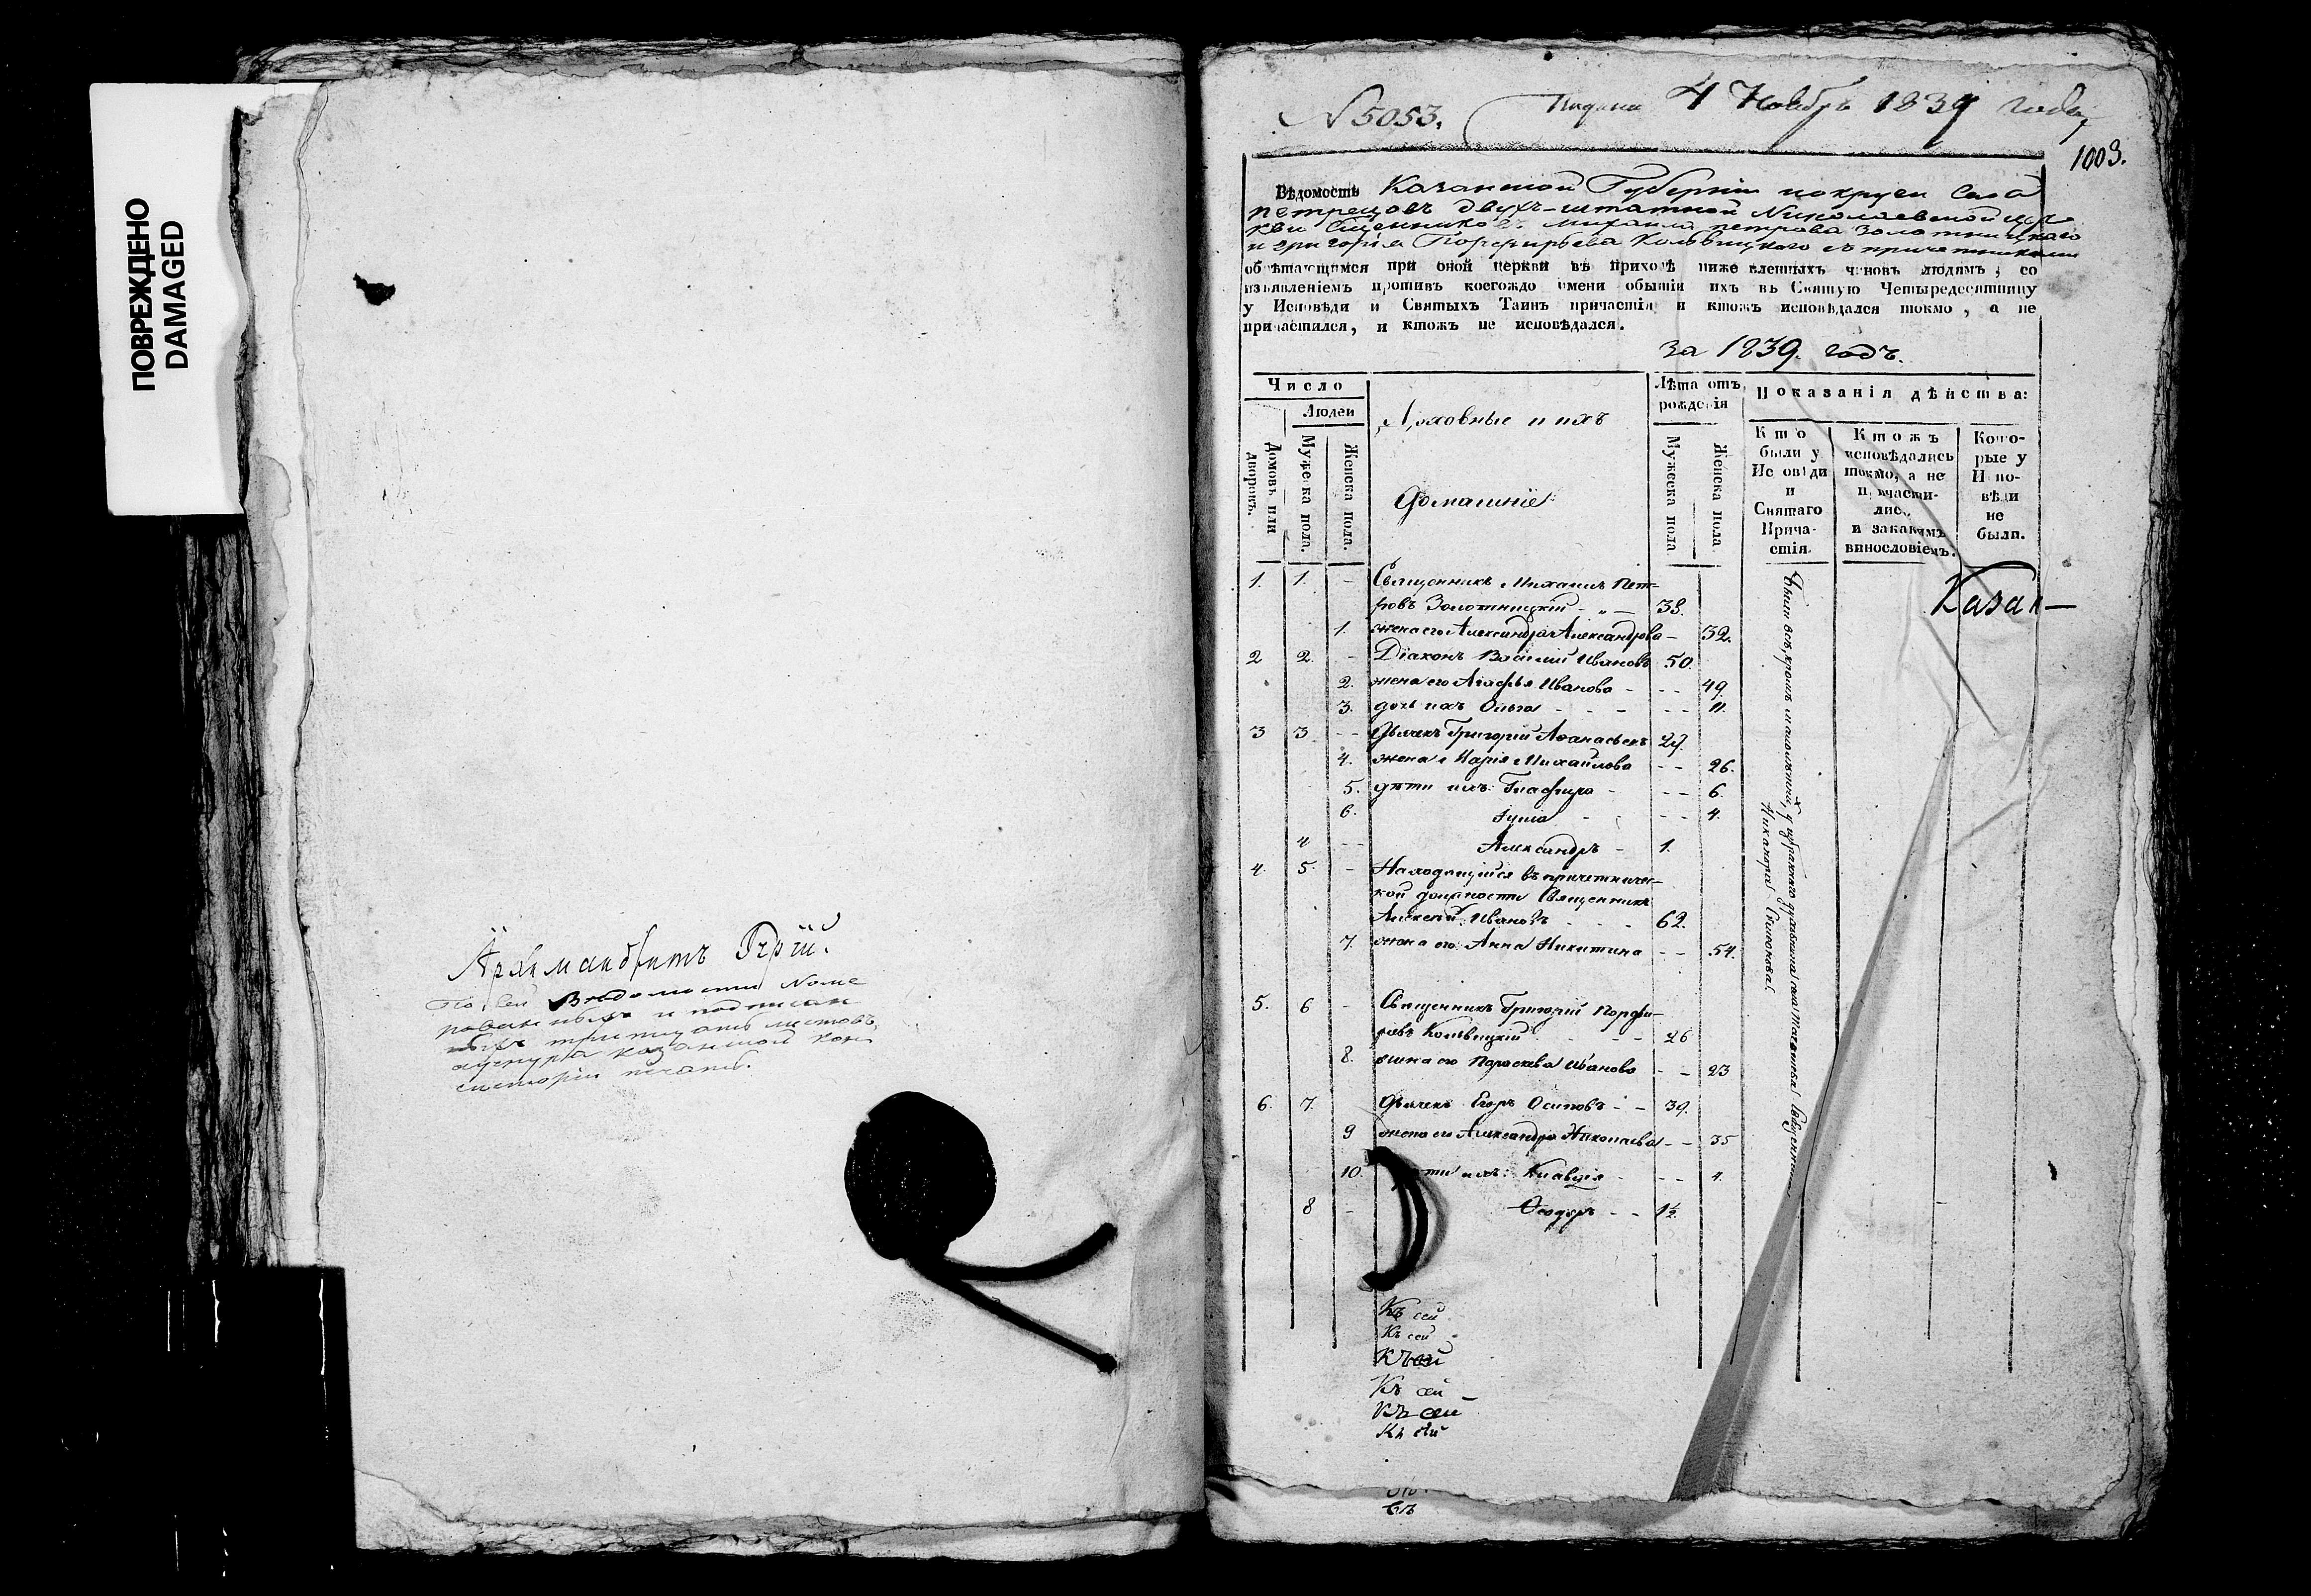 ПОВРЕЖДЕНО
DAMAGED
Архимандритъ
По сей Ведомости Номе
рованныхъ и подписан
ныхъ тритцать листовъ,
Казанской Кон
систоріи печать.
N 5053. Подана 4 Ноябрь 1839 года
1003.
Вѣдомость Казанской Губерніи и округи Села
петрецовъ двухъ-штатной Николаевской цер
кви Священниковъ Михаила петрова Золотницкаго
и григорія Порфирьева съ причетниками
обрѣтающимся при оной церкви въ приходѣ ниже вленныхъ чиновъ людямъ, со
изъявленіемъ противъ коегождо имени обытіи ихъ въ Святую Четыредесятницу
у Исповѣди и Святыхъ Таинъ причастія и ктожъ исповѣдался токмо, а не
причастился, и ктожъ не исповѣдался.
за 1839. годъ.
Число
Людей
Домовъ или дворовъ.
Мужеска пола.
Женска пола.
Духовные и ихъ
домашніе
Лѣта отъ рожденія
Мужеска пола
Женска пола
Показанія дѣйства:
Кто были у Исповѣди и Святаго Причастія
Ктожъ исповѣдались токмо, а не причастились и закакимъ винословіемъ.
Которые у Исповѣди не были.
1. 1. – Священникъ Михаилъ Пет-
ровъ Золотницкій – „ – 38.
1. жена его Александра Александрова – 32.
2 2. – Діаконъ Василій Ивановъ 50.
2. жена его Агафья Иванова – – – 49.
3. дочь ихъ Ольга – – – – – 11.
3 3 – – Дьячекъ Григорій Афанасьевъ 27.
4. жена Марія Михайлова – – 26.
5. дѣти ихъ: Глафира – – – 6.
6. Іулія – – – – 4.
4 – – Александръ – 1.
4. 5. – Находящійся въ причетничес-
кой должности Священникъ
Алексѣй Ивановъ – – – 62.
7. жена его Анна Никитина – – 54.
5. 6 – Священникъ Григорій Порфи-
ровъ – – – 26
8. жена его Параскева Иванова – – 23
6. 7. Дьячекъ Егоръ Осиповъ – – 39.
9 жена его Александра Николаева – – 35
10. ти ихъ: Клавдія – – – 4.
8 – Ѳеодоръ – – 1½
Были всѣ, кромѣ
Никанора
Казан–
Къ сей
Къ сей
Къ сей
Къ сей –
Къ сей
Къ сей